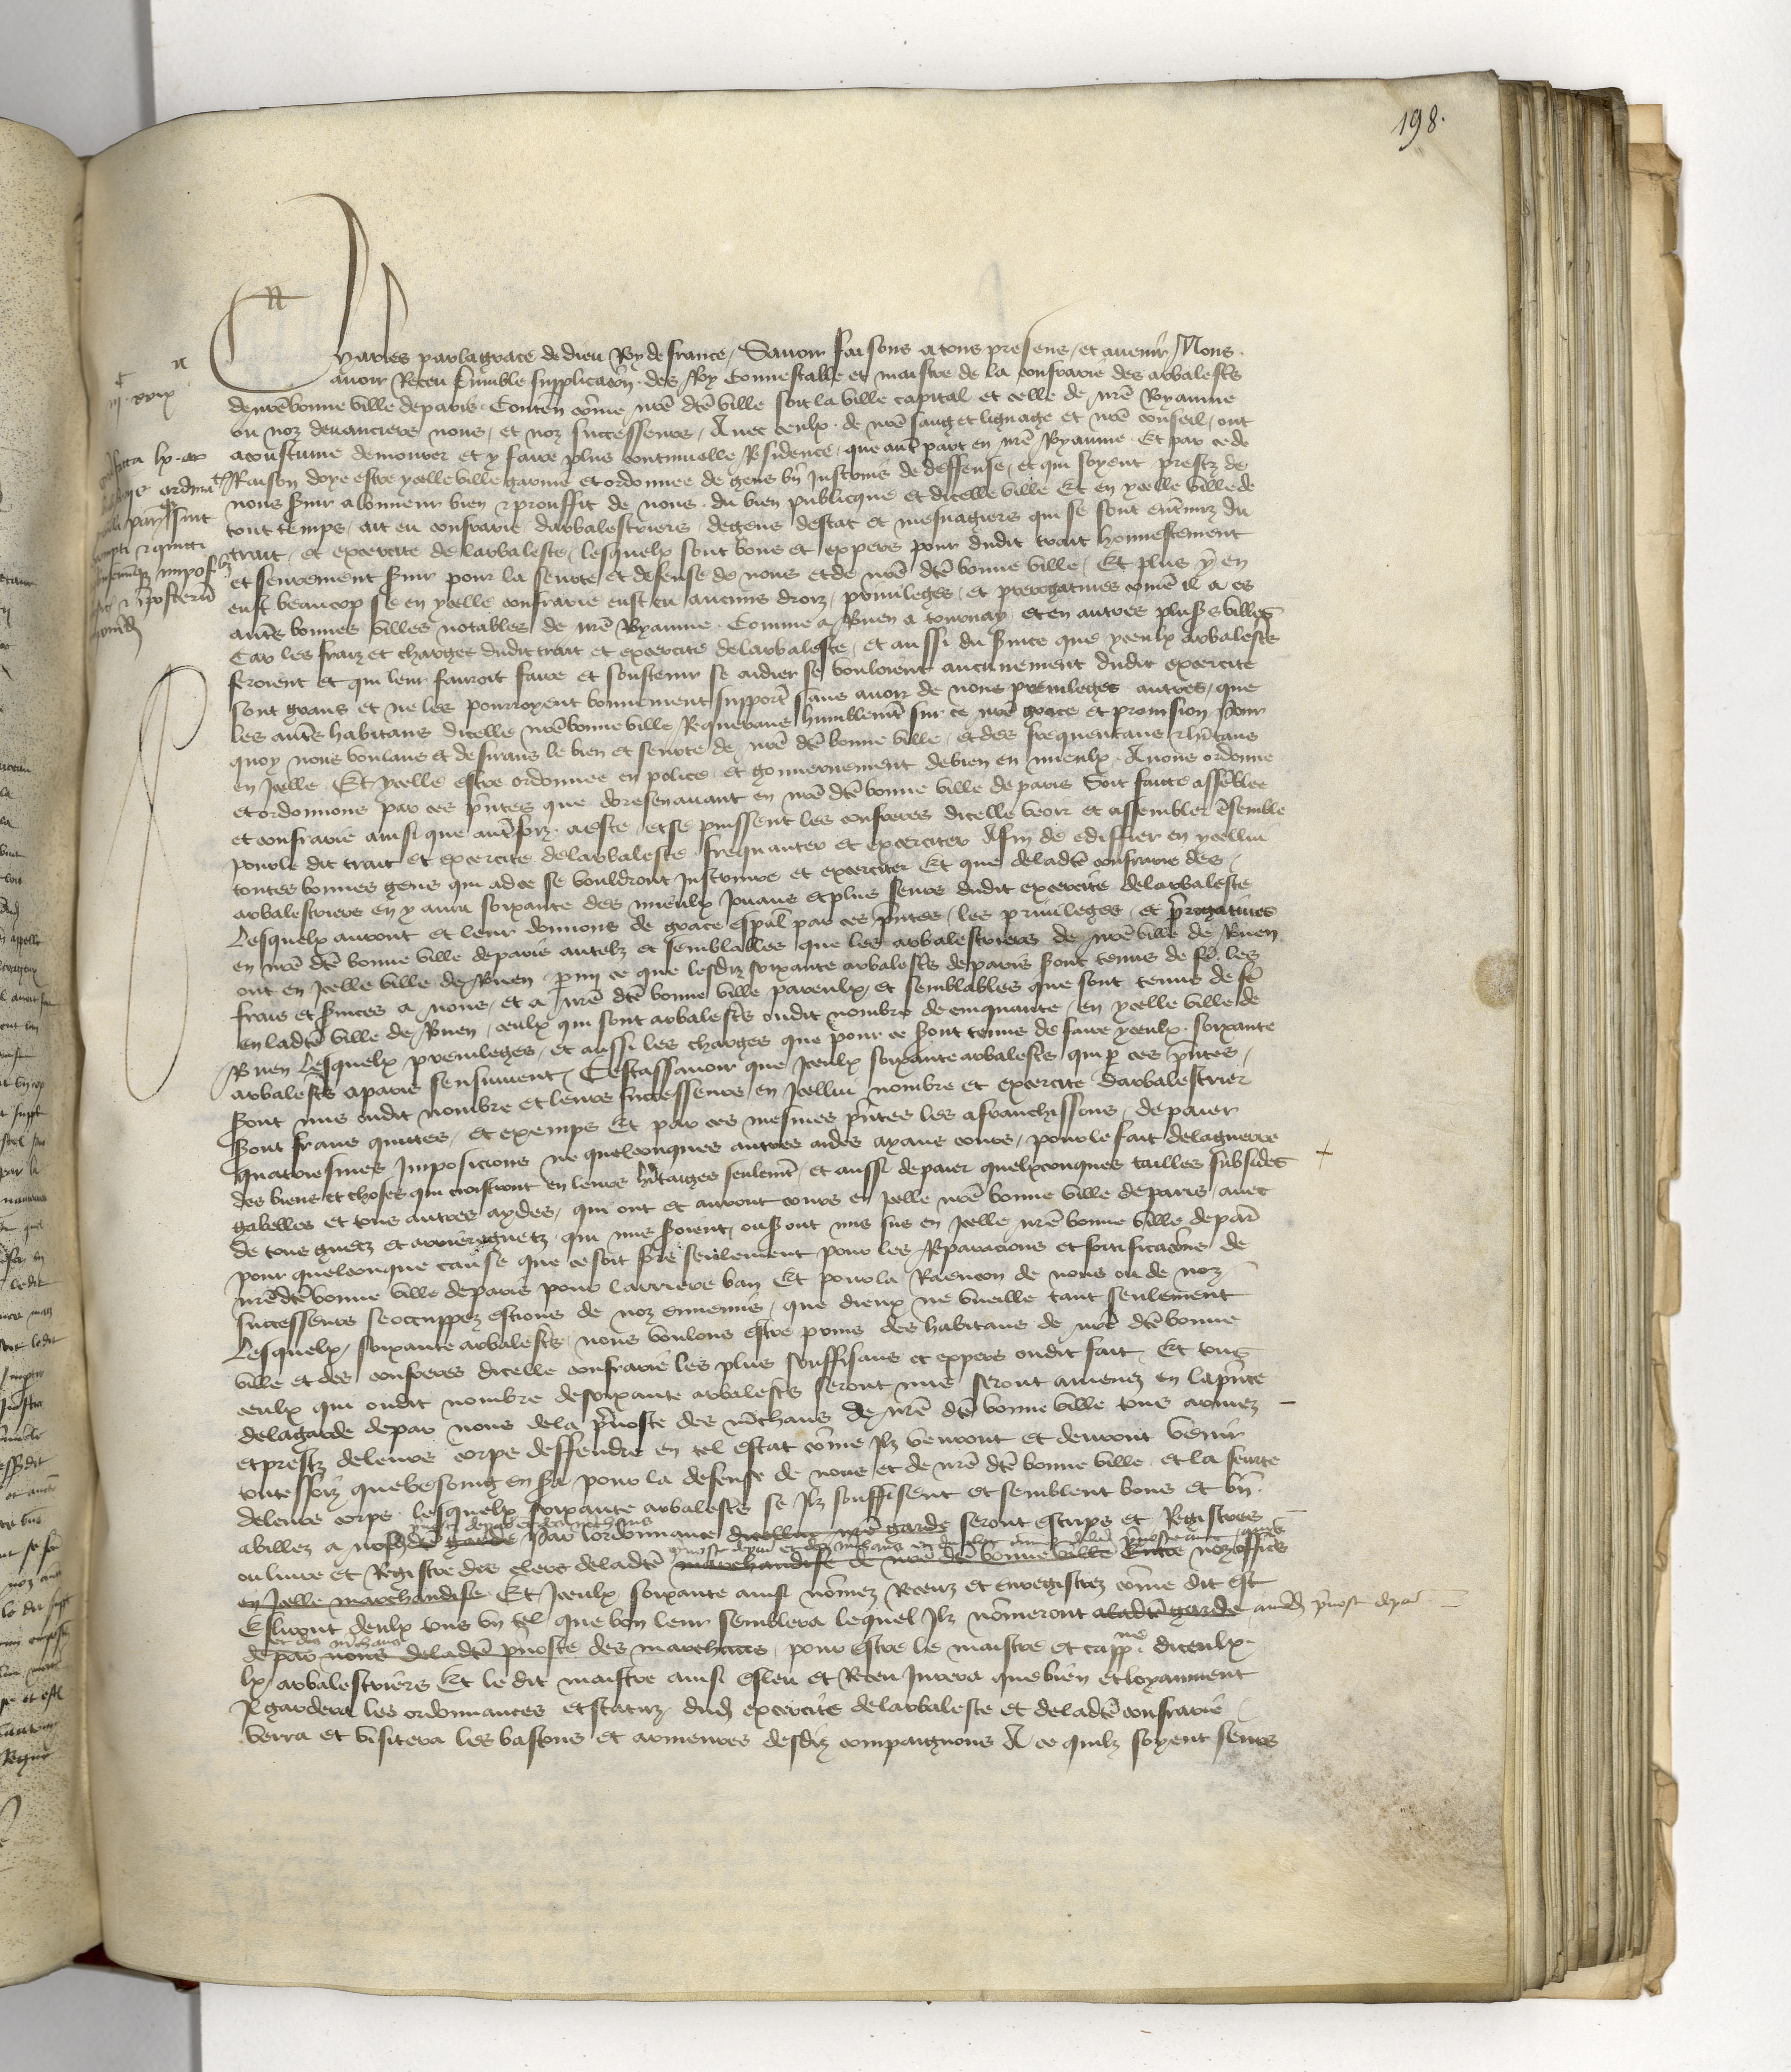 198.
Charles par la grace de dieu Roy de france, Savoir faisons a tous presens et avenir Nous
avoir Receu lumble supplicacōn des Roy Connestable et maistre de la confrarie des arbalestrs
de nrē bonne ville de paris Contēn cōme nrē dtē ville soit la ville capital et celle de nrē Royaume
ou noz devanciers nous et noz successeurs Avec ceulx de nrē sang et lignage et nrē conseil ont
acoustume demourer et y faire plus continuelle Residence que autē part en nrē Royaume Et par ce de
Raison doye estre ycelle ville garnie et ordonnee de gens bn̄ Instruis de deffense et qui soyent prestz de
nous svir a lonneur bien & prouffit de nous du bien publicque et dicelle ville Et en ycelle ville de
tout temps ait eu confrarie darbalestriers de gens destat et mesnagiers qui se sont du
trait et excercite de larbaleste lesquelx sont bons et expers pour dudit trait honnestement
et seurement svir pour la seurte et defense de nous et de nrē dtē bonne ville Et plus y en
eust beaucop se en ycelle confrarie eust eu aucuns droiz privileges et prerogatives comē il a es
autēs bonnes villes notables de nrē Royaume Comme a Rouen a tournay et en autres pluss villes
Car les fraiz et charges dudit trait et excercite de larbaleste et aussi du svice que yceulx arbalestrs
feroient et qui leur fauroit faire et soustenir se aidier se vouloient aucunement dudit excercite
sont grans et ne les pourroyent bonnement supportr sans avoir de nous previleges autres que
les autēs habitans dicelle nrē bonne ville Requerans humblemt sur ce nrē grace et provision Pour
quoy nous voulans et desirans le bien et seurte de nrē dtē bonne ville et des frequentans & hītans
en Icelle Et ycelle estre ordonnee en police et gouvernement de bien en mieulx Avons ordonne
et ordonnons par ces pntes que doresenavant en nrē dtē bonne ville de paris Soit faicte assēblee
et confrarie ainsi que autēfoiz a este et se puissent les confreres dicelle veoir et assembler ēsemble
pour le dit trait et excercite de larbaleste frequanter et excerciter Afin de ediffier en ycellui
toutes bonnes gens qui ad ce se vouldront Instruire et excerciter Et que de ladtē confrarie des
arbalestriers en y aura soixante des mieulx Jouans et plus seurs dudit excercite de larbaleste
Lesquelx auront et leur donnons de grace espal par ces pntes les privileges et prerogatives
en nrē dtē bonne ville de paris autelz et semblables que les arbalestriers de nrē ville de Rouen
ont en Icelle ville de Rouen pmi ce que lesdiz soixante arbalestrs de paris sont tenus de fē les
frais et svices a nous et a nrē dtē bonne ville pareulx et semblables que sont tenus de fē
en ladtē ville de Rouen ceulx qui sont arbalestrs oudit nombre de cinquante en ycelle ville de
Rouen Lesquelx previleges et aussi les charges que pour ce sont tenus de faire yceulx soixante
arbalestrs a paris sensuivent Cestassavoir que Iceulx soixante arbalestrs qui p ces pntes
sont mis oudit nombre et leurs successeurs en Icellui nombre et excercite darbalestrier
sont frans quittes et exemps Et par ces mesmes pntes les afranchissons de paier
quatriesmes Imposicions ne quelconques autres aides ayans cours pour le fait de la guerre
des biens et choses qui croistront en leurs hītaiges seulemt et aussi de paier quelxconques tailles subsides
gabelles et tous autres aydes qui ont et auront cours en Icelle nrē bonne ville de paris avec
de tous guetz et arrieregueetz qui mis soient ou sont mis sus en Icelle nrē bonne ville de paris
pour quelconque cause que ce soit fors seulement pour les Reparacions et fortificacōns de
nrē dtē bonne ville de paris pour larriere ban Et pour la Raencon de nous ou de noz
successeurs se occuppez estions de noz ennemis que dieux ne vueille tant seulement
Lesquelx soixante arbalestrs nous voulons estre prins des habitans de nrē dtē bonne
ville et des confreres dicelle confrarie les plus souffisans et expers oudit fait Et tous
ceulx qui oudit nombre de soixante arbalestrs seront mis seront amenez en la pnce
de la garde de par nous de la pvoste des mchans de nrē dtē bonne ville tous armez
et prestz de leurs corps deffendre en tel estat cōme Ilz venront et devront venir
toutesfoiz que besoing en sa pour la defense de nous et de nrē dtē bonne ville et la seurte
de leurs corps lesquelx soixante arbalestrs se Ilz souffisent et semblent bons et bn̄
abillez a nosdtē garde par lordonnance dicelluy nrē garde seront escrips et Registrez
ou livre et Registre des clers de ladtē marchandise de nrē dtē bonne ville Entre noz offics
en Icelle marchandise Et Iceulx soixante ainsi nōmez Receuz et enregistrez cōme dit est
Esliront deulx tous vn tel que bon leur semblera lequel Ilz nōmeront a ladtē garde audit pvost de paris
et des mchans
de par nous de ladtē pvoste des marchans pour estre le maistre et cappne diceulx
lx arbalestriers Et le dit maistre ainsi esleu et Receu Jurera que bien et loyaument
Il gardera les ordonnances et statuz dud excercite de larbaleste et de ladtē confrarie
verra et visitera les bastons et armeures desdiz compaignons A ce quilz soyent seurs